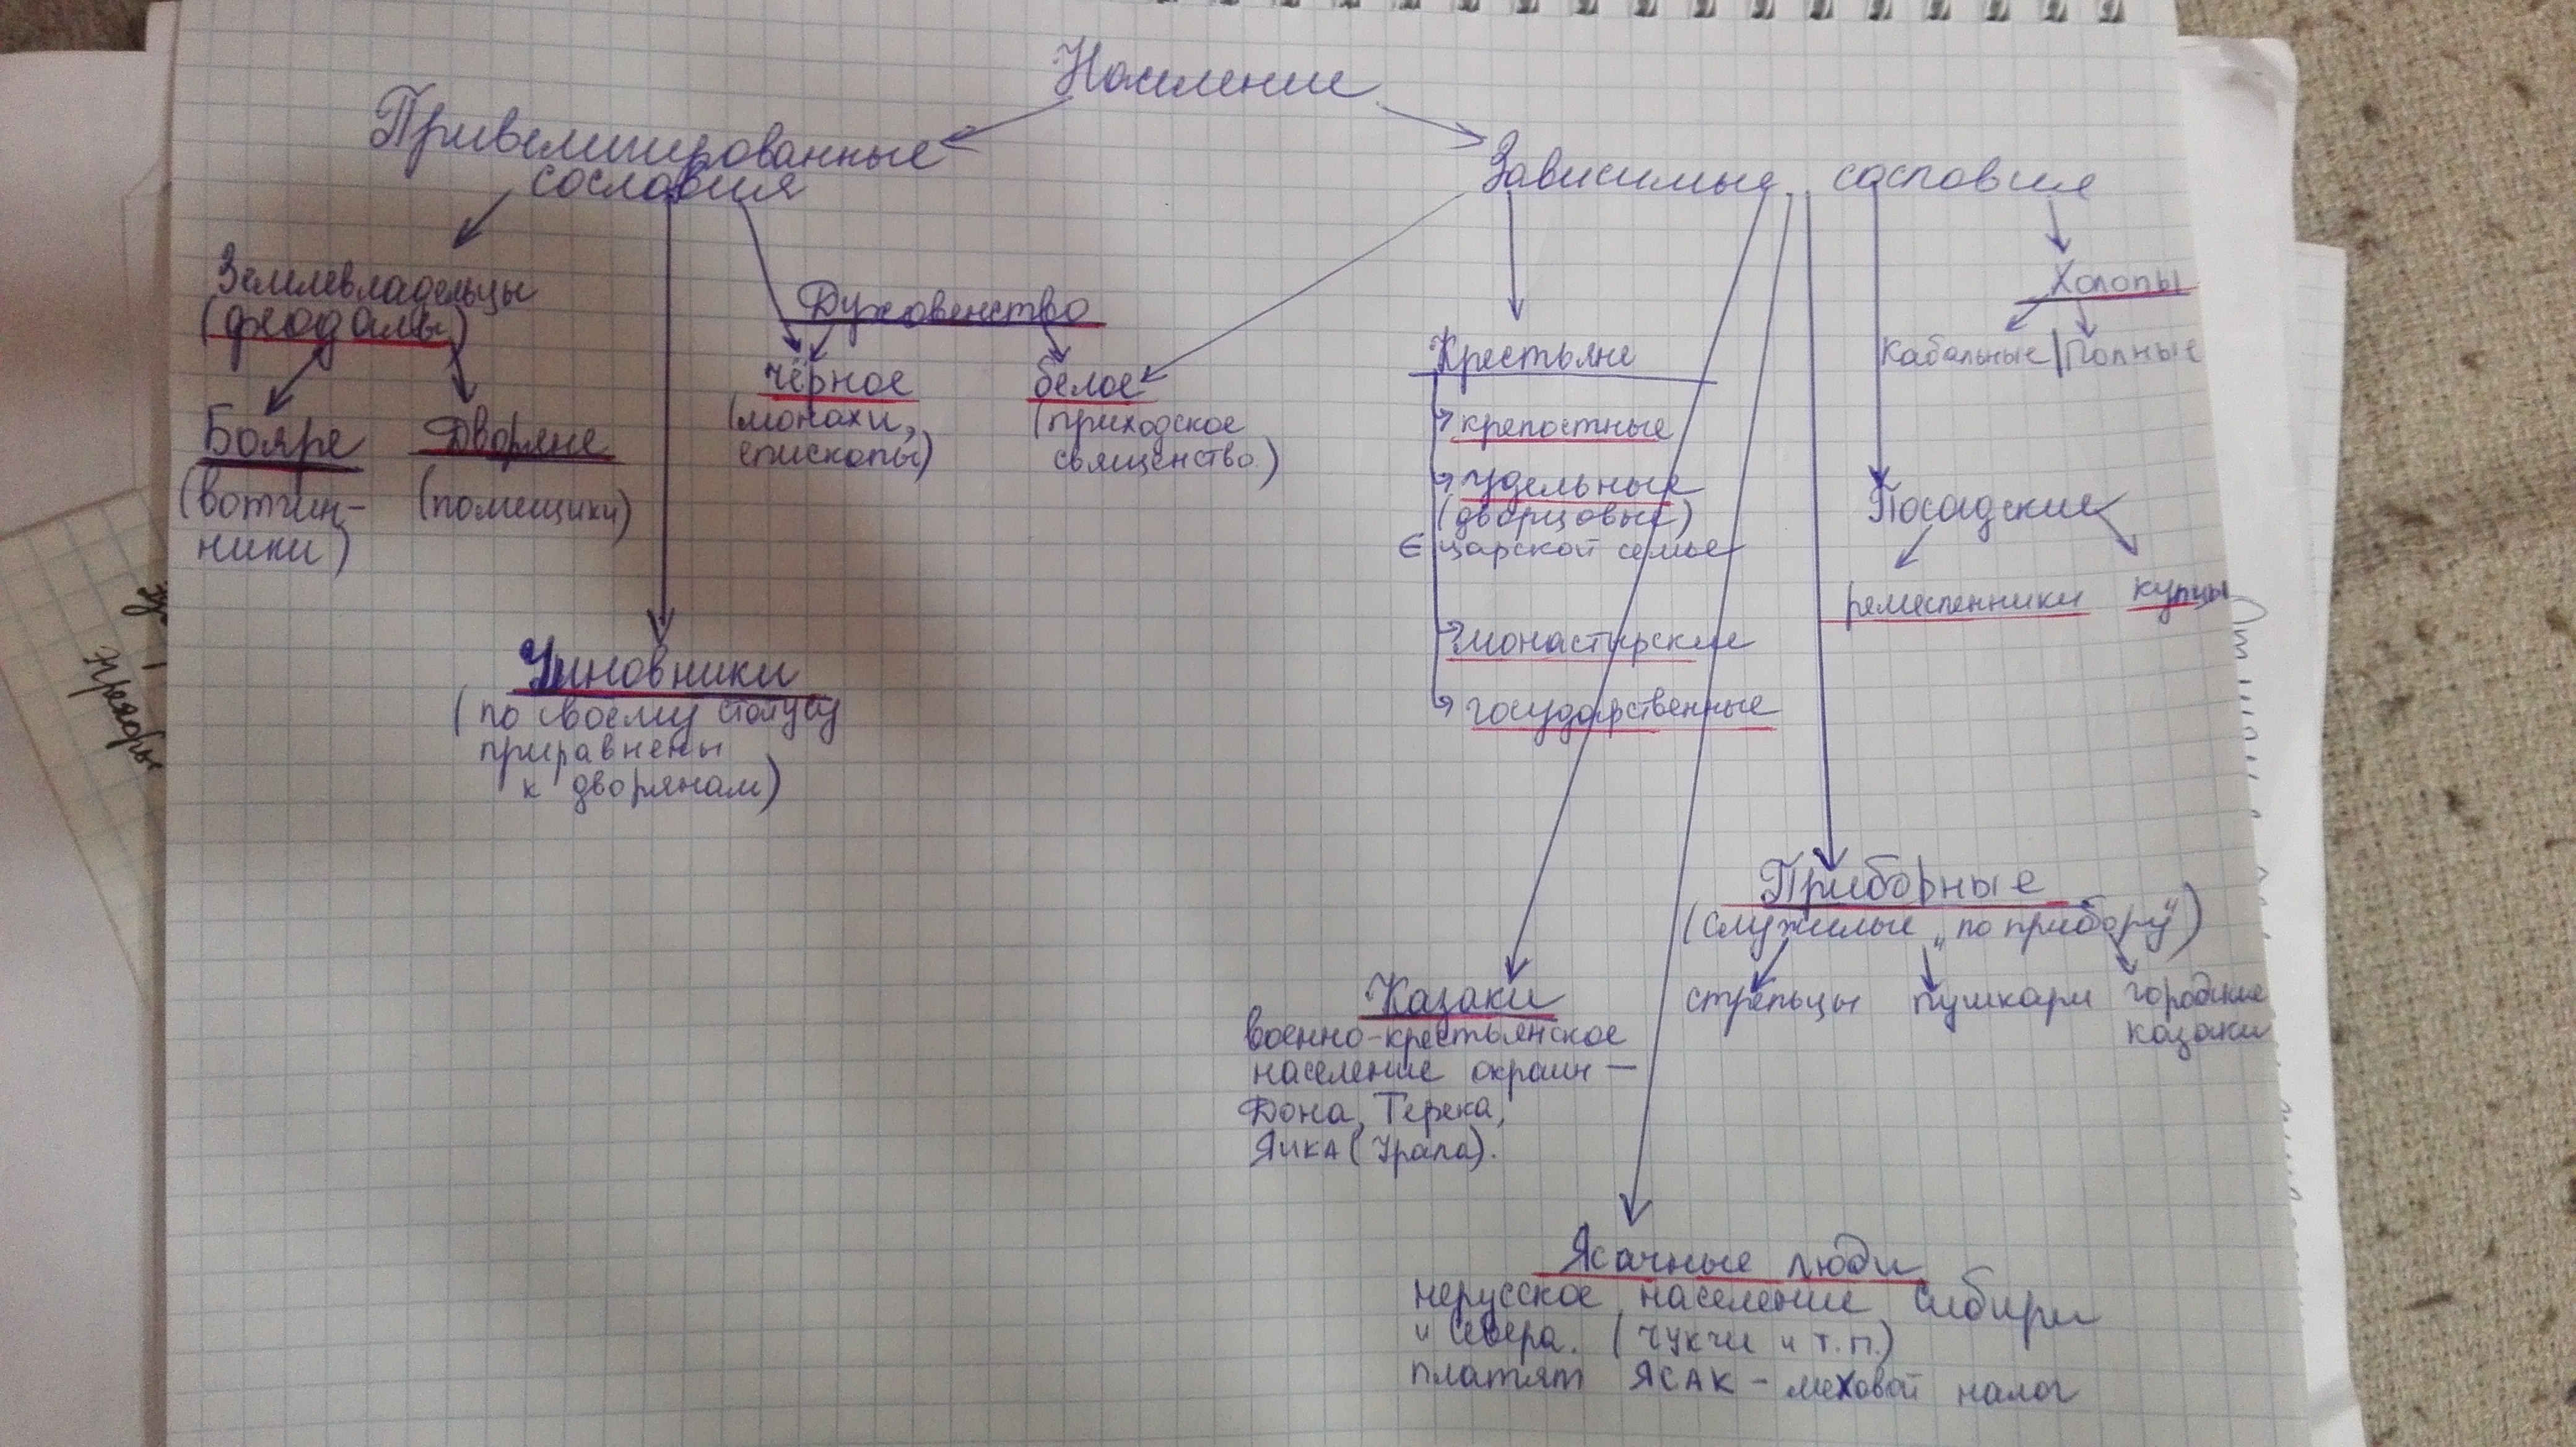 Население
Привелигированные
сословия
Зависимые сословия
Землевладельцы
(феодалы)
Бояре
(вотчин-
ники)
Дворяне
(помещики)
Духовенство
чёрное
(монахи,
епископы)
белое
(приходское
священство)
Чиновники
(по своему статусу
приравнены
к дворянам)
Крестьяне
крепостные
удельные
(дворцовые)
∈ царской семье
монастырские
государственные
Холопы
Кабальные | Полные
Посадские
ремесленники купцы
Приборные
(служилые „по прибору")
стрельцы пушкари городские
казаки
Казаки
военно-крестьянское
население окраин —
Дона, Терека,
Яика (Урала).
Ясачные люди
нерусское население Сибири
и Севера. (чукчи и т.п.)
платят ЯСАК – меховой налог